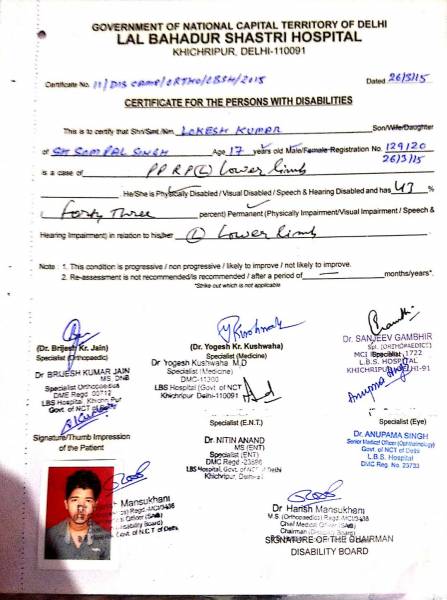 GOVERNMENT OF NATIONAL CAPITAL TERRITORY OF DELHI
LAL BAHADUR SHASTRI HOSPITAL
KHICHRIPUR, DELHI-110091
Certificate No. 11/DIS CAMP/ORTHO/LBSH/2015 Dated 26/3/15
CERTIFICATE FOR THE PERSONS WITH DISABILITIES
This is to certify that Shri/Smt./Km. LOKESH KUMAR Son/Wife/Daughter
of SH SOM PAL SINGH Age 17 years old Male/Female Registration No. 129120
26/3/15
is a case of PPRP (L) Lower limb
He/She is Physically Disabled / Visual Disabled / Speech & Hearing Disabled and has 43 %
Forty Three percent) Permanent (Physically Impairment/Visual Impairment / Speech &
Hearing Impairment) in relation to his/her (L) Lower limb
Note : 1. This condition is progressive / non progressive / likely to improve / not likely to improve.
2. Re-assessment is not recommended/is recommended / after a period of months/years*.
*Strike out which is not applicable
(Dr. Brijesh Kr. Jain)
Specialist (Orthopaedic)
Dr BRIJESH KUMAR JAIN
MS, DNB
Specialist Orthopaedics
DMC Regd
LBS Hospital, Khichri Pur
Govt. of NCT of Delhi
(Dr. Yogesh Kr. Kushwaha)
Specialist (Medicine)
Dr Yogesh Kushwaha M.D
Specialist (Medicine)
DMC-11300
LBS Hospital (Govt of NCT)
Khichripur Delhi-110091
Dr. SANJEEV GAMBHIR
Spl. (ORTHOPAEDICT)
MCI 1722
L.B.S. HOSPITAL
KHICHRIPUR, DELHI-91
Signature/Thumb Impression
of the Patient
Specialist (E.N.T.)
Dr. NITIN ANAND
MS (ENT)
Specialist (ENT)
LBS Hospital, Govt. of NCT of Delhi
Khichripur, Delhi
Specialist (Eye)
Dr. ANUPAMA SINGH
Senior Medical Officer (Ophthalmology)
L.B.S. Hospital
DMC Reg. No. 23733
Mansukhani
Dr Harish Mansukhani
M.S. (Orthopaedics) Regd.
Chief Medical Officer (SAG)
Chairman (Disability Board)
SIGNATURE OF THE CHAIRMAN
DISABILITY BOARD